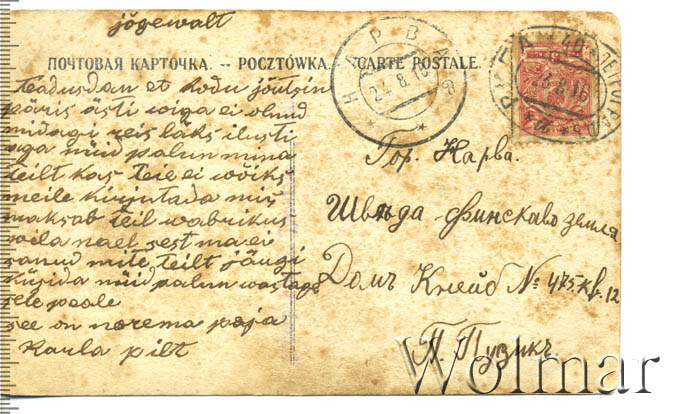 jõgewalt
ПОЧТОВАЯ КАРТОЧКА. -- POCZTÓWKA. -- CARTE POSTALE.
Teadusdan et kodu jõutsin
päris ästi wiga ei olnud
midagi reis läks ilusti
aga nüid palun mina
teilt kas Teie ei wõiks
meile kirjutada mis
maksab teil wabrikus
wila nael sest ma ei
sanud mite teilt jäugi
küsida nüid palun wastage
sele peale
see on norema poja
Karla pilt
НАРВА
24.8.16
23 8 16
Гор. Нарва.
Шведа-финскаво земля
Домъ Кнейб № 475. кв. 12
П. Пузикъ
Wolmar